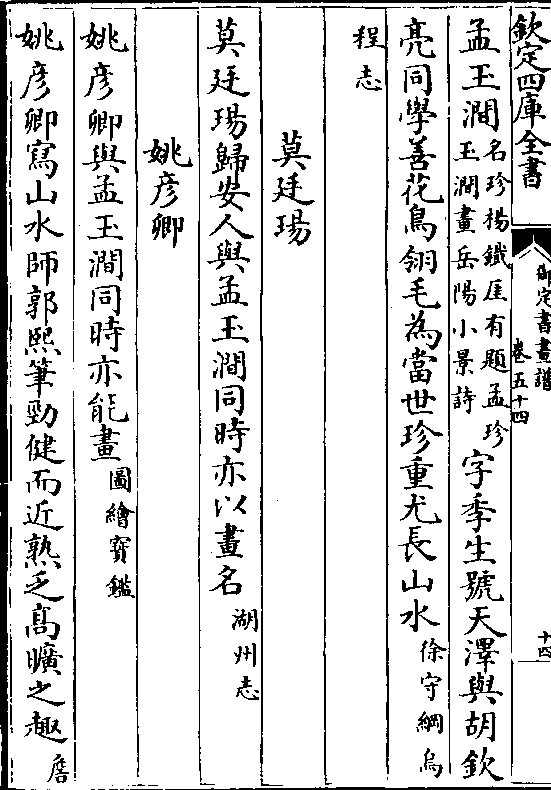 欽定四庫全書
御定書畫譜
卷五十四
十四
孟玉澗名珍楊鐵厓有題孟珍玉澗畫岳陽小景詩字季生號天澤與胡欽
亮同學善花鳥翎毛為當世珍重尤長山水徐守綱烏
程志
莫廷瑒
莫廷瑒歸安人與孟玉澗同時亦以畫名湖州志
姚彥卿
姚彥卿與孟玉澗同時亦能畫圖繪寶鑑
姚彥卿寫山水師郭熙筆勁健而近熟乏高曠之趣詹